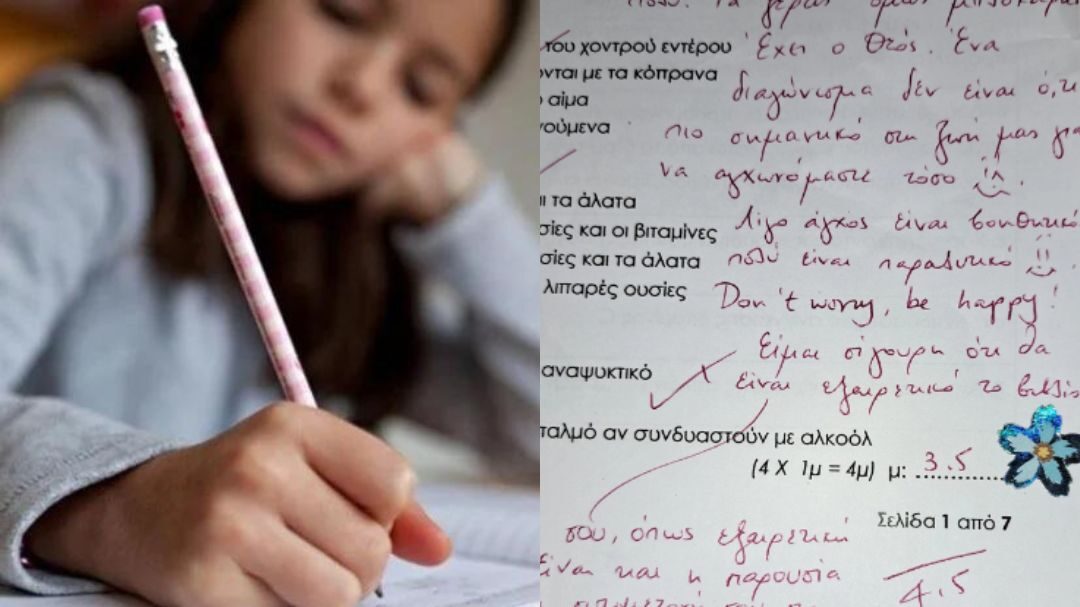 του χοντρού εντέρου Έχει ο Θεός. Ένα
νται με τα κόπρανα διαγώνισμα δεν είναι ό,τι
αίμα
ούμενα πιο σημαντικό στη ζωή μας για
να αγχωνόμαστε τόσο
ι τα άλατα
σίες και οι βιταμίνες Λίγο άγχος είναι βοηθητικό
σίες και τα άλατα πολύ είναι παραλυτικό
λιπαρές ουσίες Don't worry, be happy!
Είμαι σίγουρη ότι θα
αναψυκτικό είναι εξαιρετικό το βιβλίο
ταλμό αν συνδυαστούν με αλκοόλ
(4 Χ 1μ = 4μ) μ: 3.5
Σελίδα 1 από 7
σου, όπως εξαιρετική
είναι και η παρουσία 4,5